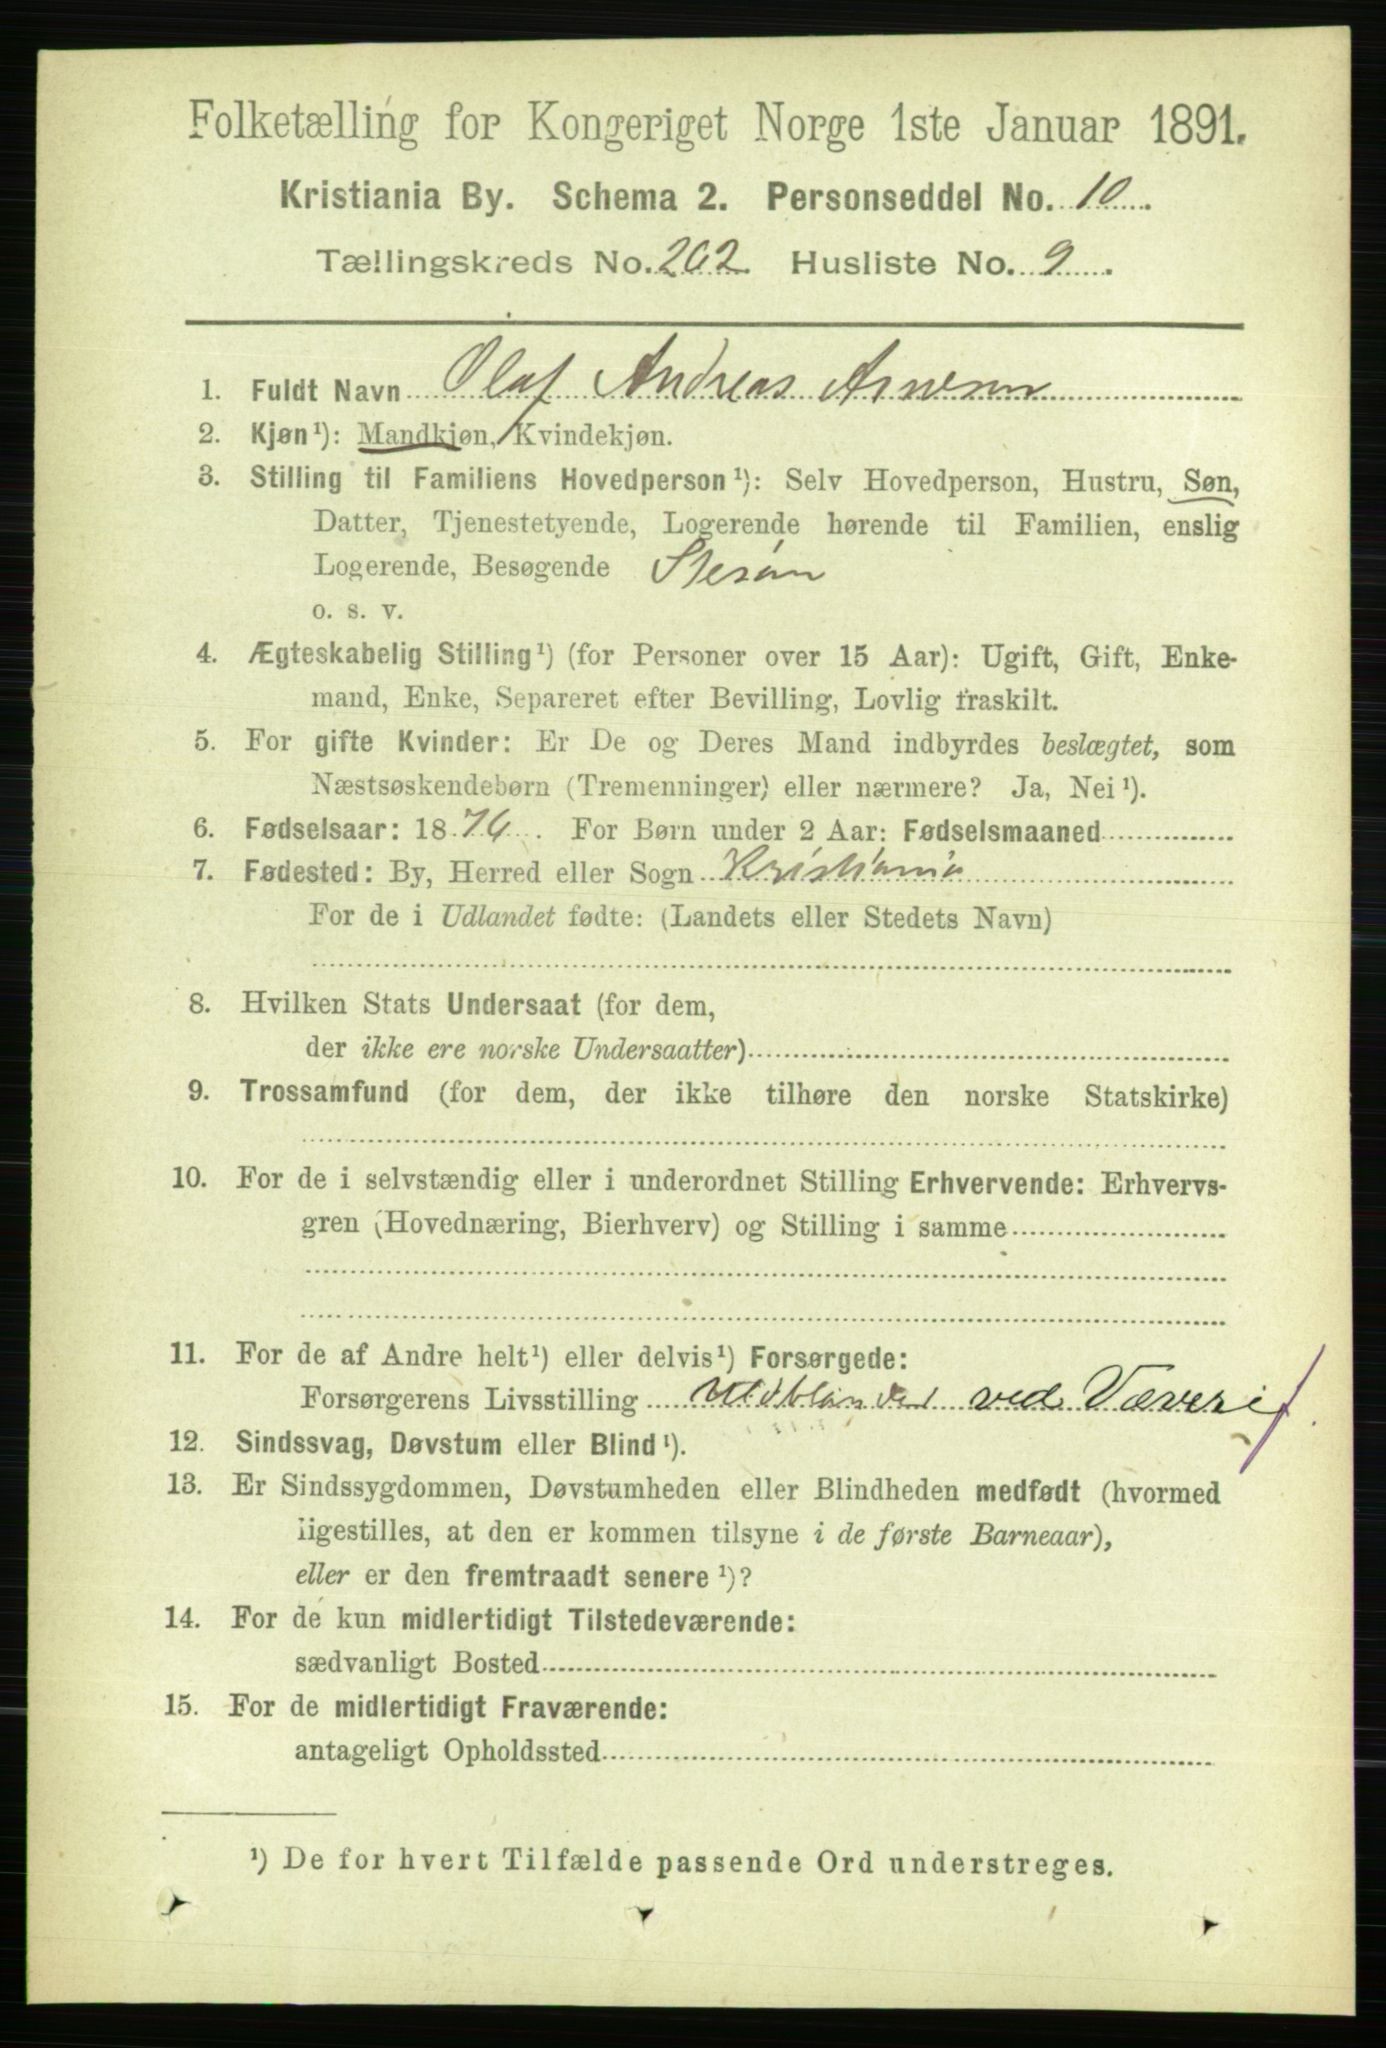 Folketælling for Kongeriget Norge 1ste Januar 1891.
Kristiania By. Schema 2. Personseddel No. 10.
Tællingskreds No. 202. Husliste No. 9.
1. Fuldt Navn Olaf Andreas Arnesen
2. Kjøn¹): Mandkjøn, Kvindekjøn.
3. Stilling til Familiens Hovedperson¹): Selv Hovedperson, Hustru, Søn,
Datter, Tjenestetyende, Logerende hørende til Familien, enslig
Logerende, Besøgende Stesøn
o. s. v.
4. Ægteskabelig Stilling¹) (for Personer over 15 Aar): Ugift, Gift, Enke-
mand, Enke, Separeret efter Bevilling, Lovlig fraskilt.
5. For gifte Kvinder: Er De og Deres Mand indbyrdes beslægtet, som
Næstsøskendebørn (Tremenninger) eller nærmere? Ja, Nei¹).
6. Fødselsaar: 1876. For Børn under 2 Aar: Fødselsmaaned
7. Fødested: By, Herred eller Sogn Kristiania
For de i Udlandet fødte: (Landets eller Stedets Navn)
8. Hvilken Stats Undersaat (for dem,
der ikke ere norske Undersaatter)
9. Trossamfund (for dem, der ikke tilhøre den norske Statskirke)
10. For de i selvstændig eller i underordnet Stilling Erhvervende: Erhvervs-
gren (Hovednæring, Bierhverv) og Stilling i samme
11. For de af Andre helt¹) eller delvis¹) Forsørgede:
Forsørgerens Livsstilling Uldblander ved Væveri
12. Sindssvag, Døvstum eller Blind¹).
13. Er Sindssygdommen, Døvstumheden eller Blindheden medfødt (hvormed
ligestilles, at den er kommen tilsyne i de første Barneaar),
eller er den fremtraadt senere¹)?
14. For de kun midlertidigt Tilstedeværende:
sædvanligt Bosted
15. For de midlertidigt Fraværende:
antageligt Opholdssted
¹) De for hvert Tilfælde passende Ord understreges.